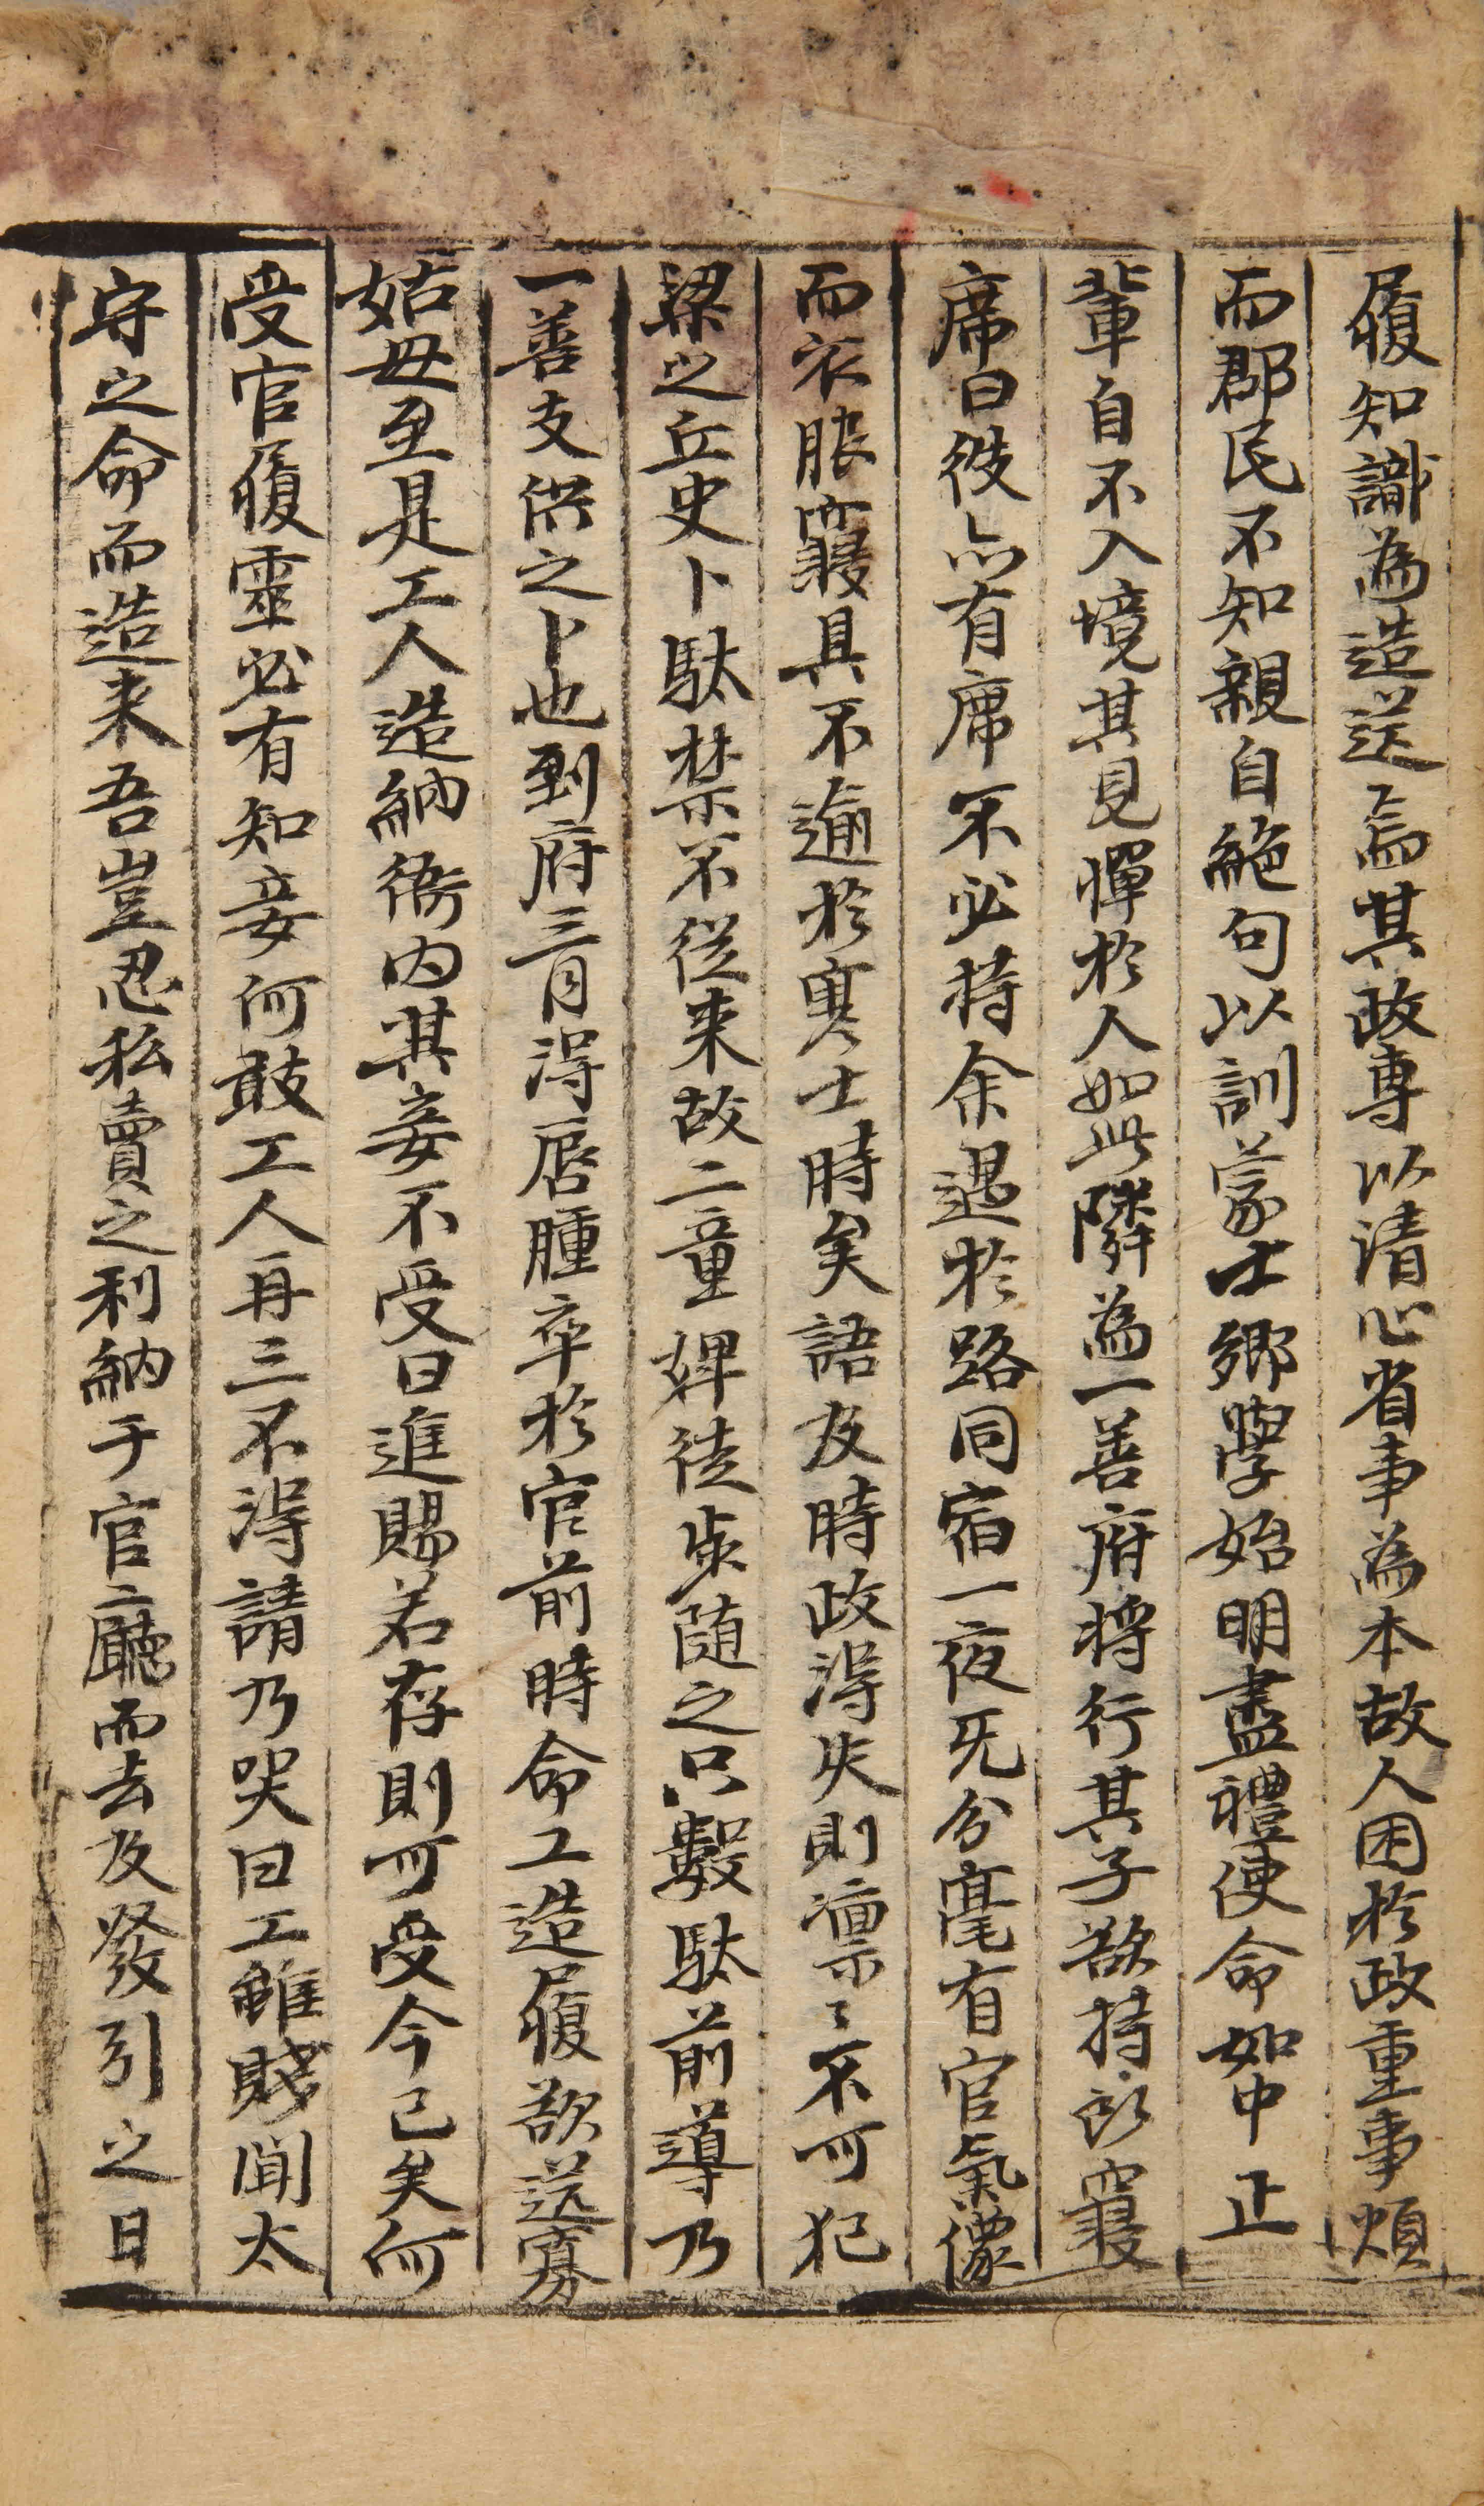 履知識為造送焉其政專以清心省事為本故人困於政重事煩
而郡民不知親自絶句以訓蒙士鄉學始明盡禮使命如中正
輩自不入境其見憚於人如此隣為一善府將行其子欲持所寢
席曰彼亦有席不必持余遇於路同宿一夜旡分毫有官氣儓
而衣服寢具不逾於寒士時矣語及時政得失則凛〻不可犯
梁之丘史卜馱禁不從来故二童婢徒步随之只數馱前導乃
一善支供之卜也到府三月得唇腫卒於官前時命工造履欲送寡
姑母至是工人造納衙内其妾不受曰進賜若存則可受今已矣何
受官履靈必有知妾何敢工人再三不得請乃哭曰工雖賤聞太
守之命而造来吾豈忍私賣之利納于官廳而去及發引之日